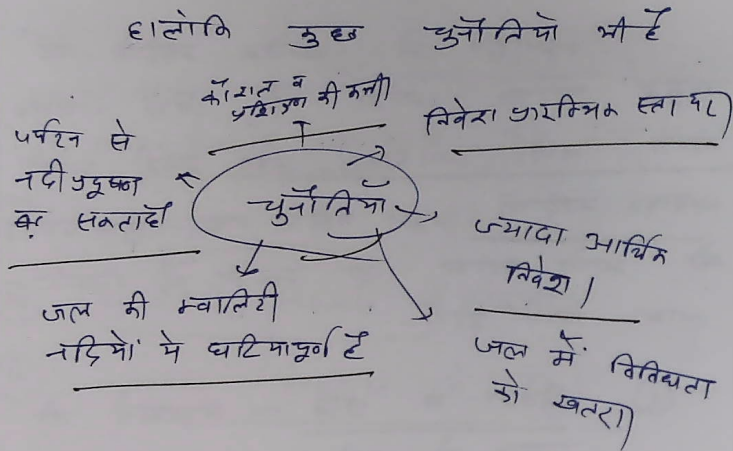 हालांकि कुछ चुनौतियाँ भी है
कौशल व
प्रशिक्षण की कमी
निवेश प्रारम्भिक स्तर पर
पर्यटन से
नदी प्रदूषण
बढ़ सकता है
चुनौतियाँ
ज्यादा आर्थिक
निवेश।
जल की क्वालिटी
नदियों मे घटियापूर्ण है
जल में विविधता
को खतरा